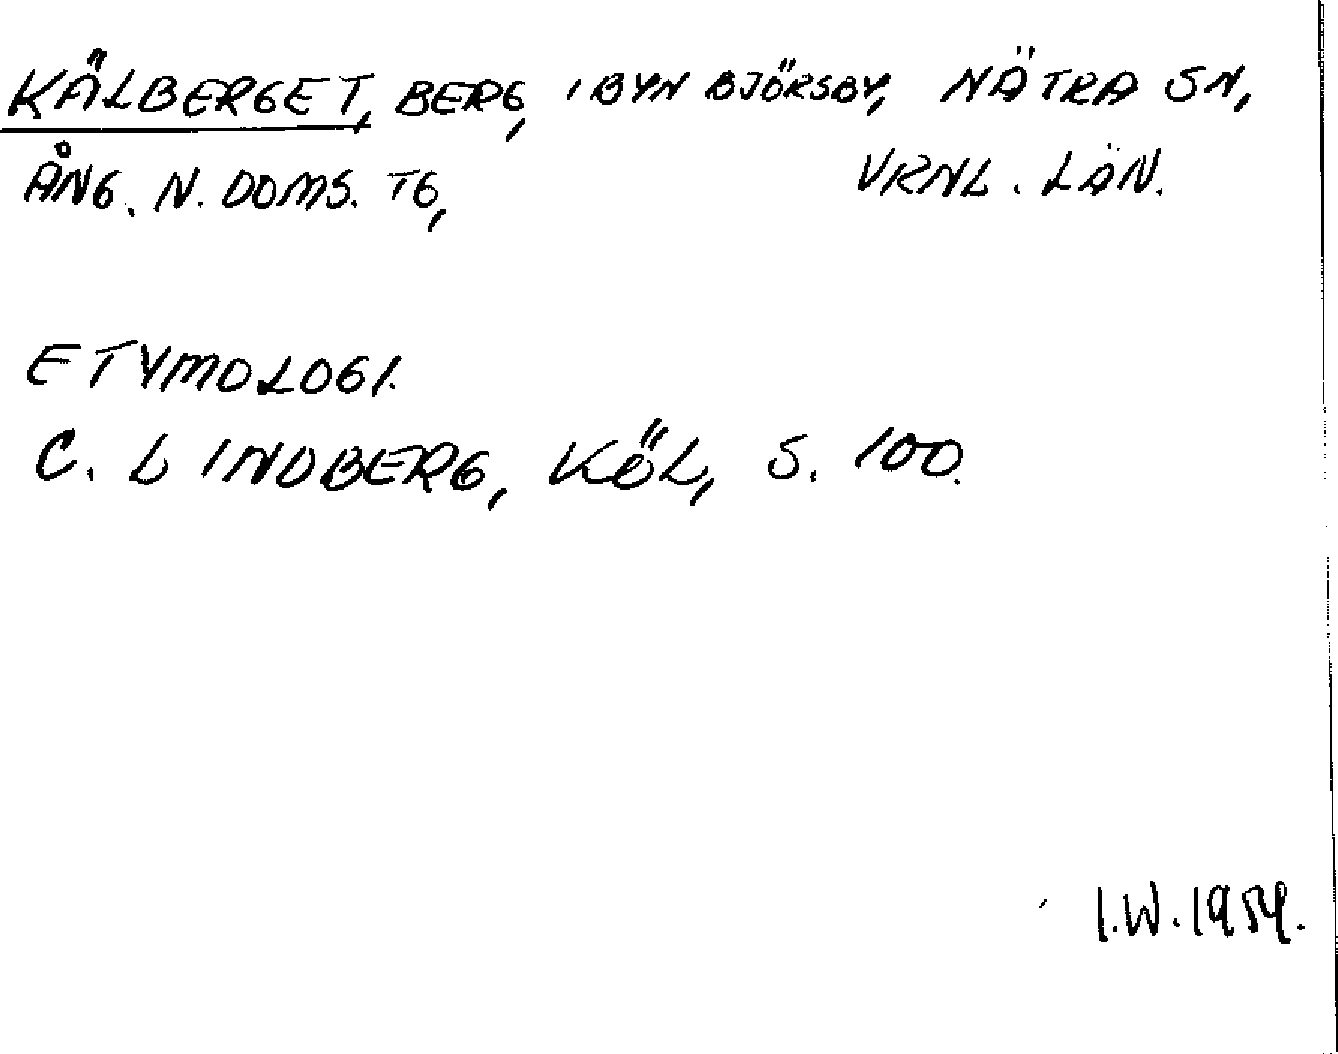 KÄLBERGET, BERG, I BYN BJÖRSBY, NÄTRA SN,
ÅNG. N. DOMS. TG, VRNL. LÄN.
ETYMOLOGI.
C. LINDBERG, KÖL, S. 100.
I.W. 1954.